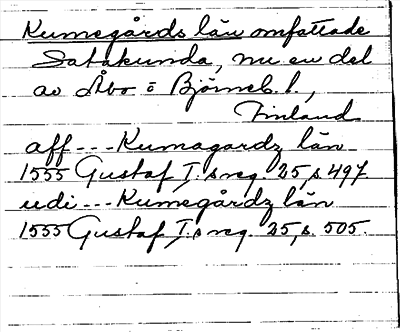 Kumegårds län omfattade
Satakunda, nu en del
av Åbo o Björneb. l.,
Finland
aff --- Kumagardz län
1555 Gustaf I:s reg. 25, s 497
udi --- Kumegårdz län
1555 Gustaf I:s reg. 25, s. 505.